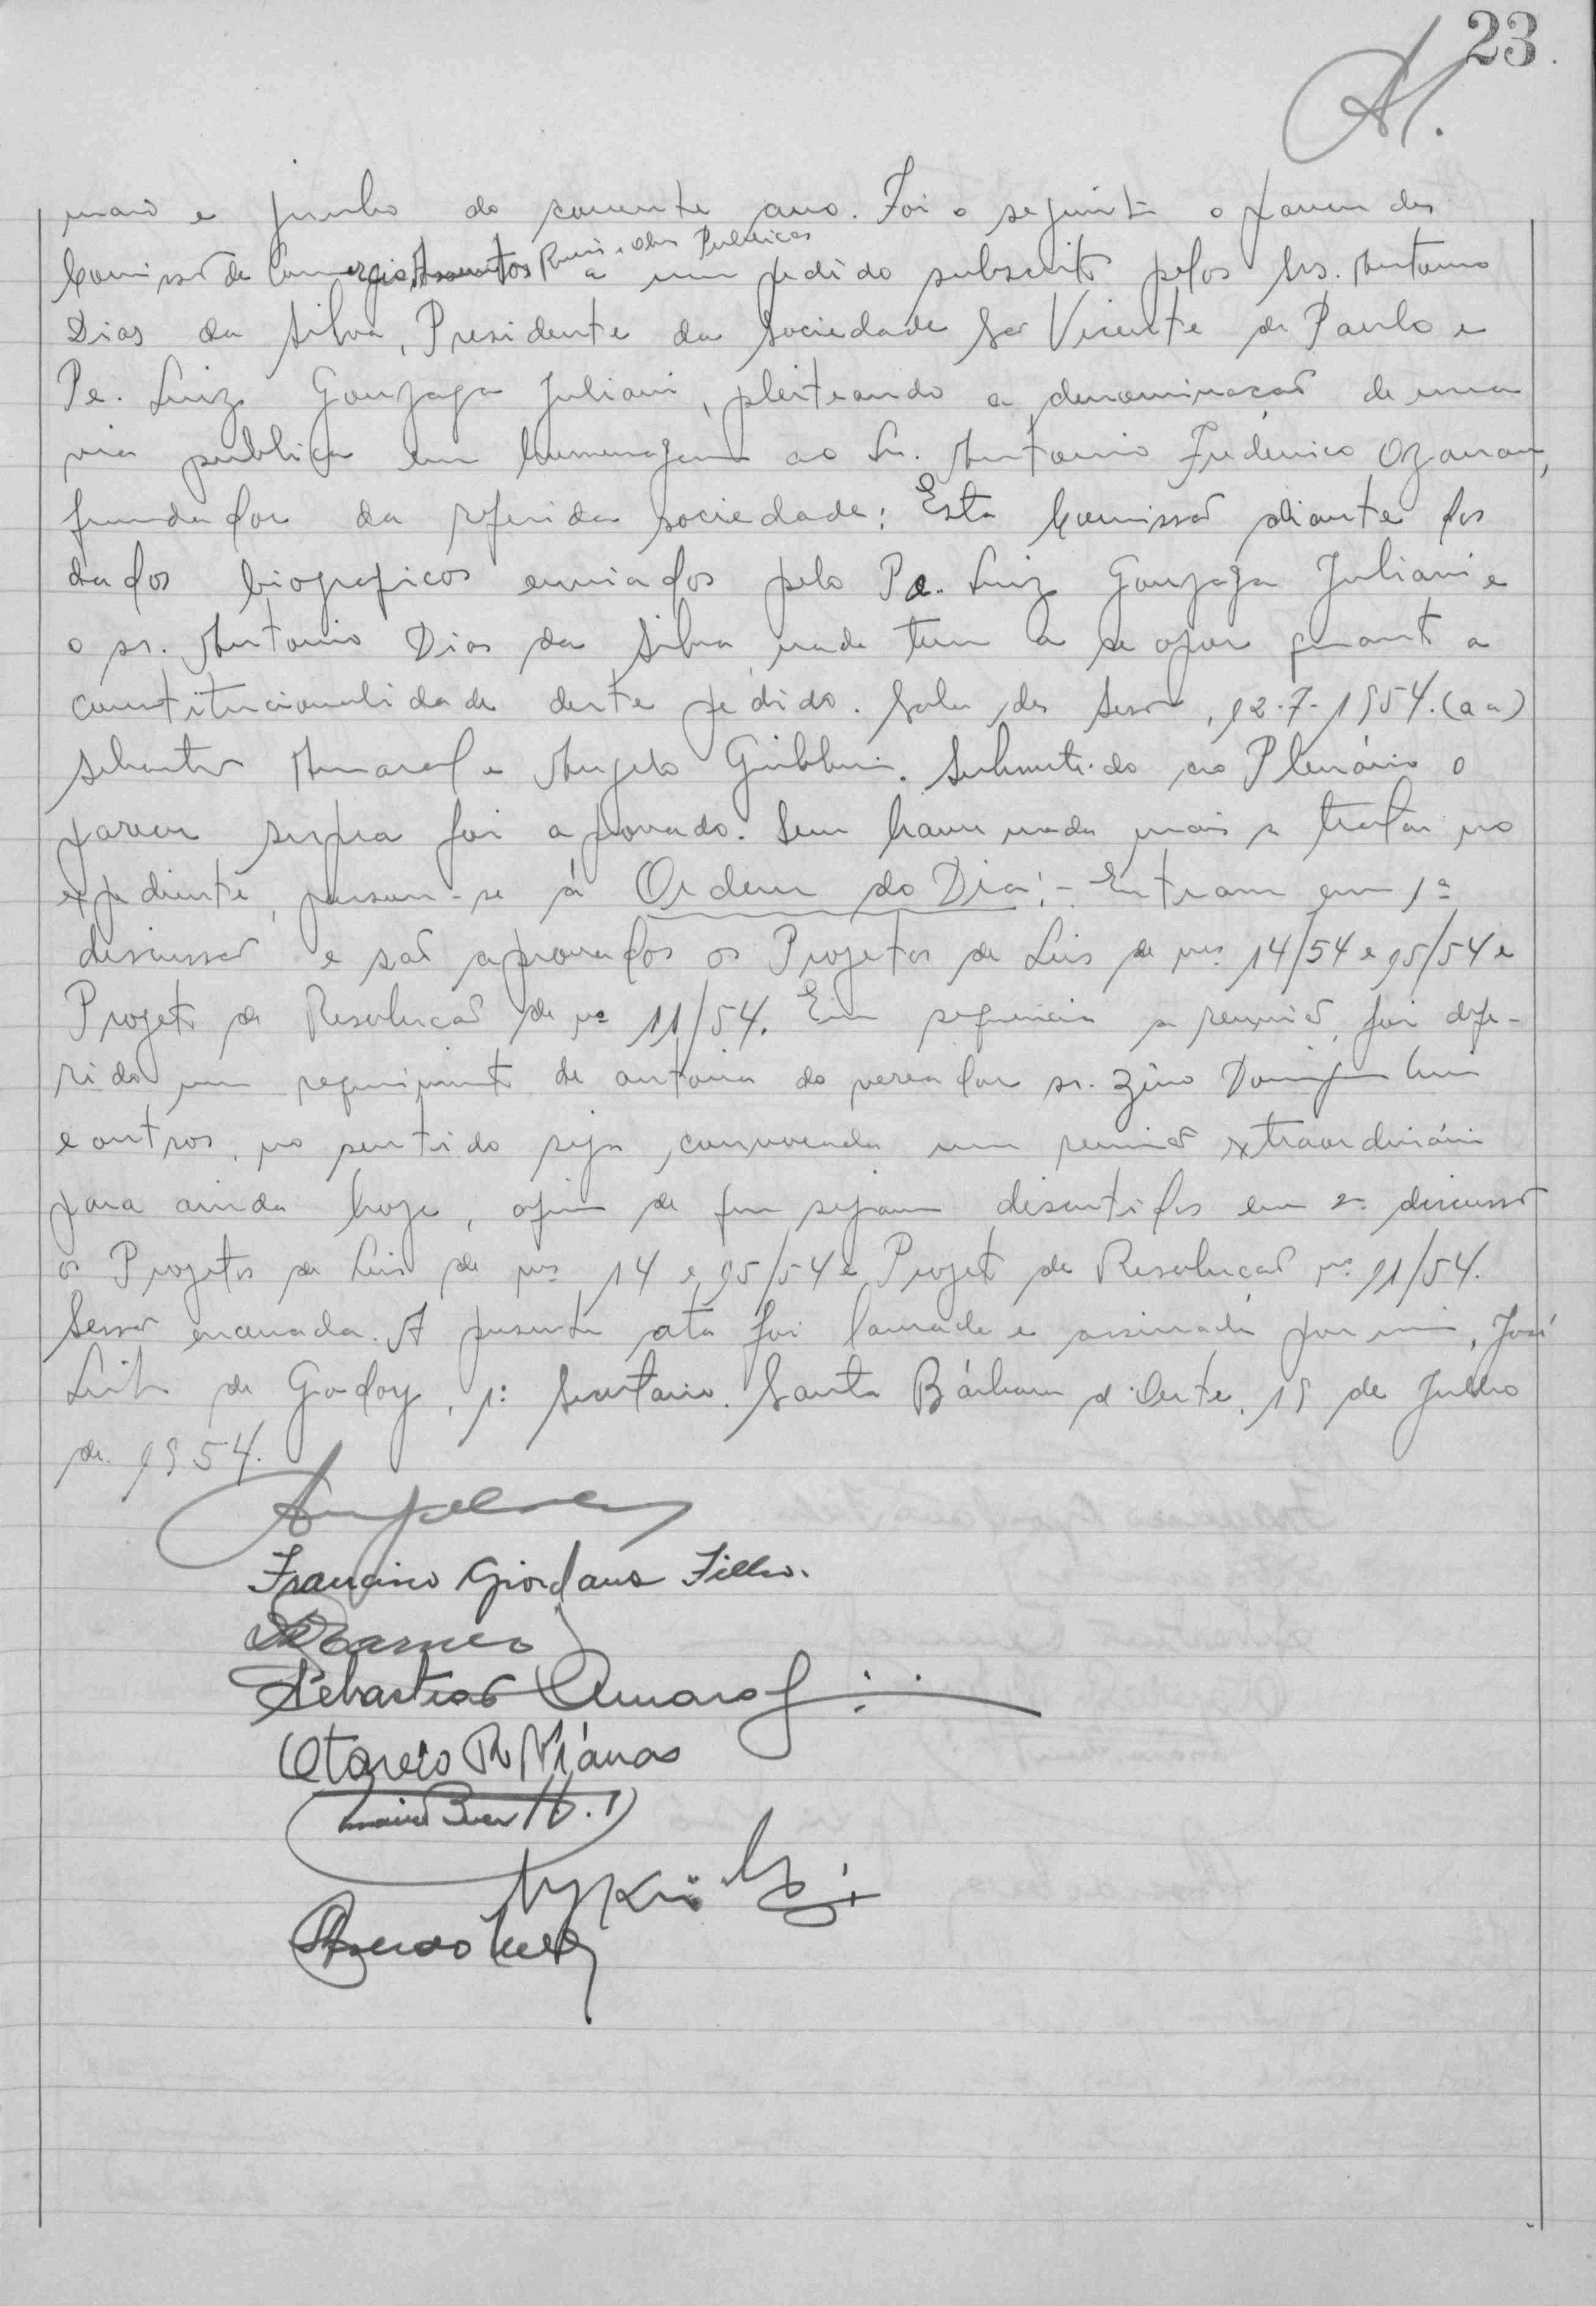 23
maio e junho do corrente ano. Foi o seguinte o parecer da
Comissão de Comercio, Assuntos Rurais e Obras Publicas a um pedido subscrito pelos Srs. Antonio
Dias da Silva, Presidente da Sociedade São Vicente de Paulo e
Pe. Luiz Gonzaga Juliani, pleiteando a denominação de uma
via publica em homenagem ao Sr. Antonio Frederico Ozanan,
fundador da referida sociedade: Esta Comissão diante dos
dados biograficos enviados pelo Pe. Luiz Gonzaga Juliani e
o sr. Antonio Dias da Silva, nada tem a se opor quanto a
constitucionalidade deste pedido. Sala das Sessões, 12-7-1954. (aa)
Sebastião Amaral e Angelo Giubbina. Submetido ao Plenário o
parecer supra foi aprovado. Sem haver nada mais a tratar no
expediente, passou-se á Ordem do Dia:- Entram em 1ª
discussão e são aprovados os Projetos de Leis de nºs 14/54 e 15/54 e
Projeto de Resolução de nº 11/54. Em sequencia a reunião, foi defe-
rido um requerimento de autoria do vereador sr. Zino
e outros, no sentido seja convocada uma reunião extraordinária
para ainda hoje, afim de que sejam discutidos em 2ª discussão
os Projetos de Leis de nºs 14 e 15/54 e Projeto de Resolução nº 11/54.
Sessão encerrada. A presente ata foi lavrada e assinada por mim, José
Leite de Godoy, 1º Secretario. Santa Bárbara d'Oeste, 19 de Julho
de 1954.
Francisco Giordano Filho.
Sebastião Amaral
Otavio R Vianas